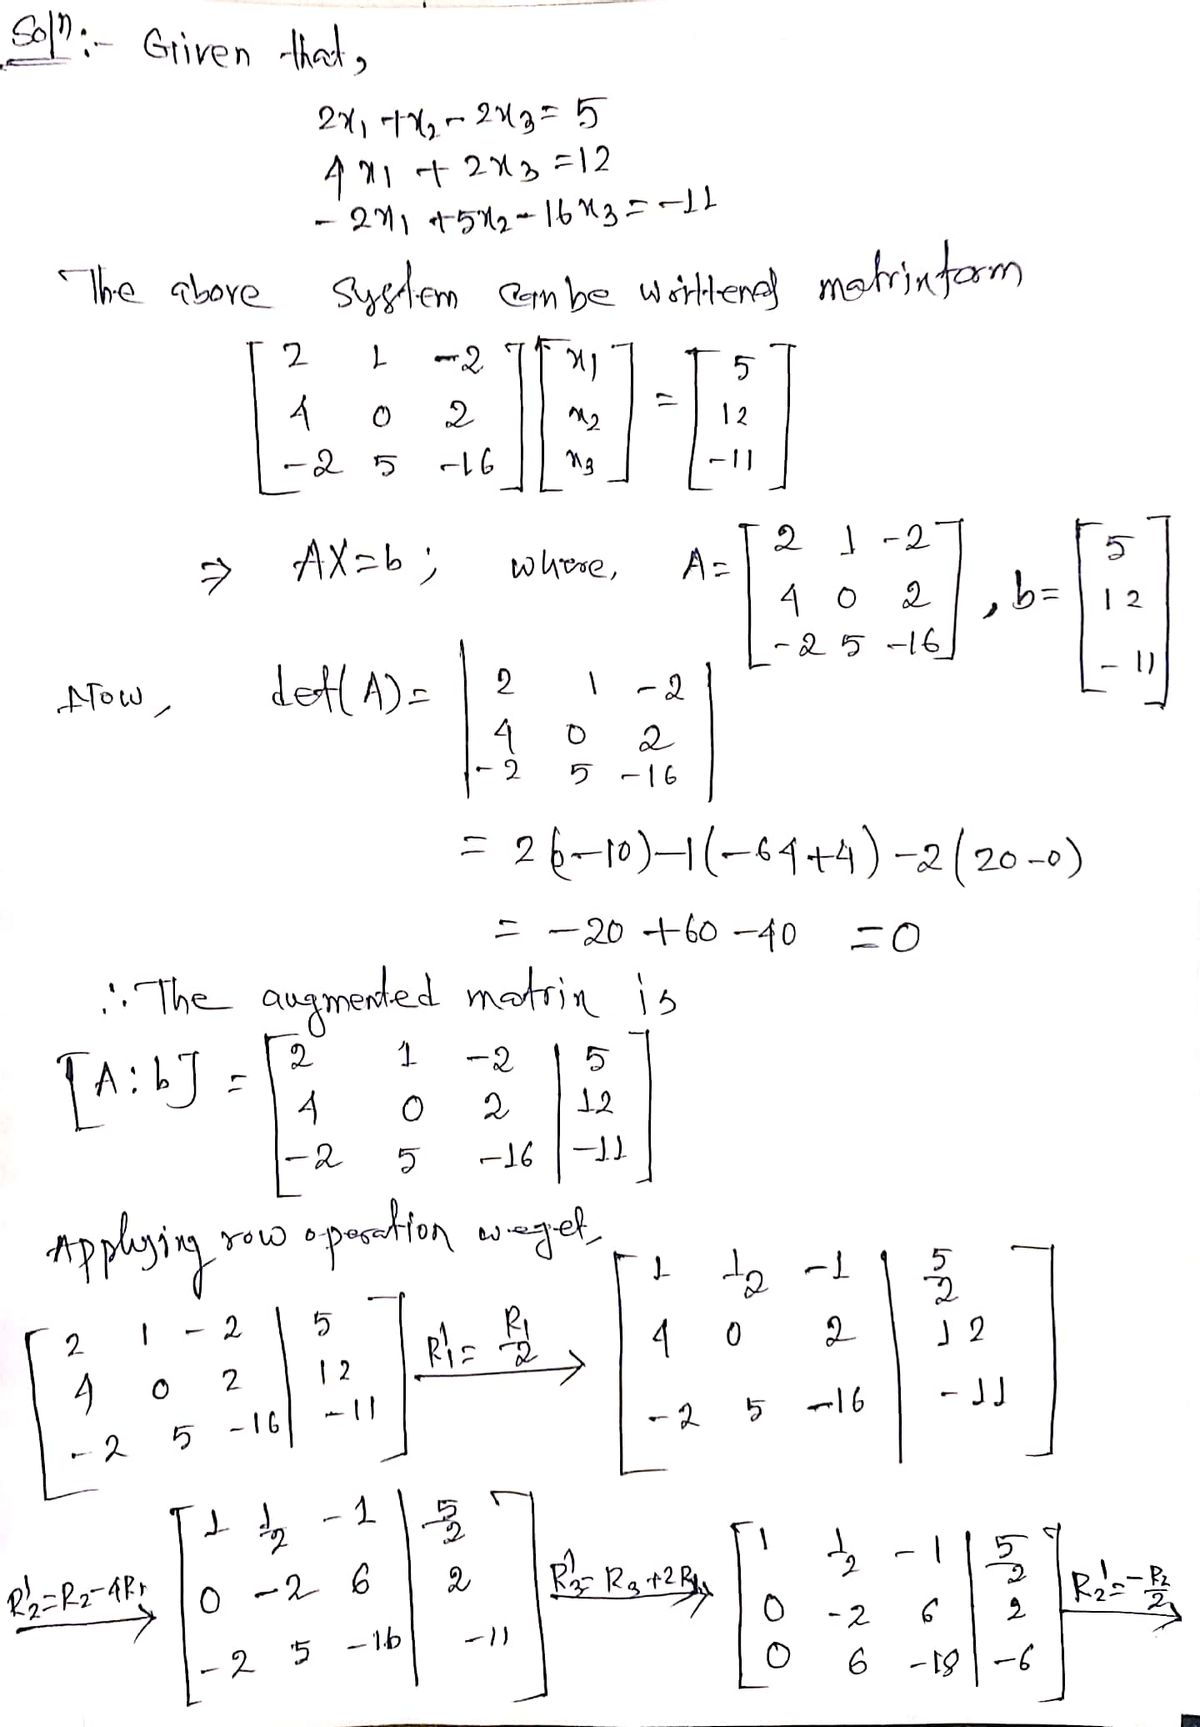 Solⁿ:- Given that,
2x₁ + x₂ - 2x₃ = 5
4x₁ + 2x₃ = 12
-2x₁ + 5x₂ - 16x₃ = -11
The above system can be writtenof matrinform
[2 1 -2] [x₁] = [5]
[4 0 2] [x₂] [12]
[-2 5 -16] [x₃] [-11]
⇒ AX=b; where, A= [2 1 -2; 4 0 2; -2 5 -16], b= [5; 12; -11]
Now, det(A) = |2 1 -2|
|4 0 2|
|-2 5 -16|
= 2(-10)-1(-64+4)-2(20-0)
= -20+60-40 =0
∴ The augmented matrix is
[A:b] = [2 1 -2 | 5]
[4 0 2 | 12]
[-2 5 -16 | -11]
Applying row operation we get,
[2 1 -2 | 5; 4 0 2 | 12; -2 5 -16 | -11] R₁' = R₁/2 → [1 1/2 -1 | 5/2; 4 0 2 | 12; -2 5 -16 | -11]
R₂'=R₂-4R₁ → [1 1/2 -1 | 5/2; 0 -2 6 | 2; -2 5 -16 | -11] R₃'=R₃+2R₁ → [1 1/2 -1 | 5/2; 0 -2 6 | 2; 0 6 -18 | -6] R₂'=-R₂/2 →